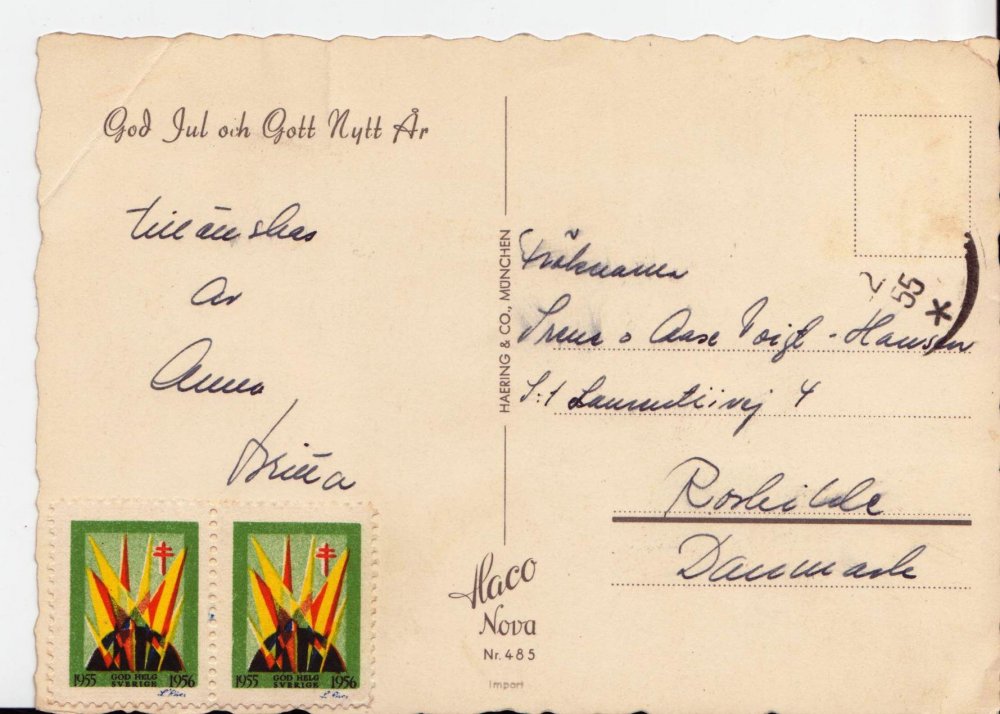 God Jul och Gott Nytt År
tillönskas
av
Anna
Britta
HAERING & CO., MÜNCHEN
2
55
*
Fröknarna
Irene o Aase Voigt-Hansen
S:t Laurentiivej 4
Roskilde
Danmark
Haco
Nova
Nr. 485
Import
1955 GOD HELG SVERIGE 1956
1955 GOD HELG SVERIGE 1956